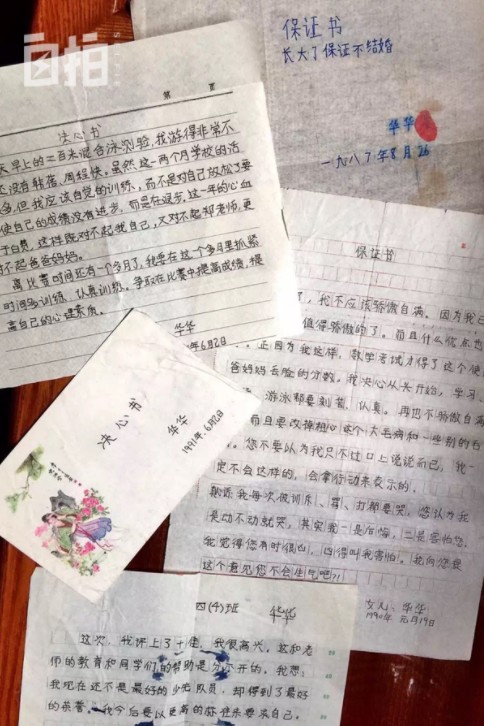 自拍
保证书
长大了保证不结婚
华华
一九八七年8月26
第 页
决心书
天早上的二百米混合泳测验,我游得非常不
还没有张蓓、周经快。虽然这一两个月学校的活
多,但我应该自觉的训练,而不是对自己放松了要
使自己的成绩没有进步,而是在退步,这一年的心血
于白费,这样既对不起我自己,又对不起郑老师,更
对不起爸爸妈妈。
离比赛时间还有一个多月了,我要在这一个多月里抓紧
时间多训练、认真训练。争取在比赛中提高成绩,提
高自己的心理素质。
华华
年6月2日
决心书
华华
1991年6月2日
保证书
了,我不应该骄傲自满。因为我已
值得骄傲的了。而且什么优点也
正因为我这样,数学考试才得了这个使
爸妈妈丢脸的分数。我决心从头开始,学习、
游泳都要刻苦、认真。再也不骄傲自满
而且要改掉粗心这个大毛病和一些别的毛
。您不要以为我只不过口上说说而已,我一
定不会这样的,会拿行动来表示的。
我每次被训斥、骂、打都要哭,您认为我
是动不动就哭,其实我一是后悔,二是害怕您。
我觉得您有时很凶,凶得叫我害怕。我向您提
这个意见您不会生气吧?!
女儿:华华
1990年 元月19日
四(4)班 华华
这次,我评上了十佳,我很高兴,这和老
师的教育和同学们的帮助是分不开的。我想:
我现在还不是最好的少先队员,却得到了最好
的荣誉。我今后要以更高的标准来要求自己。